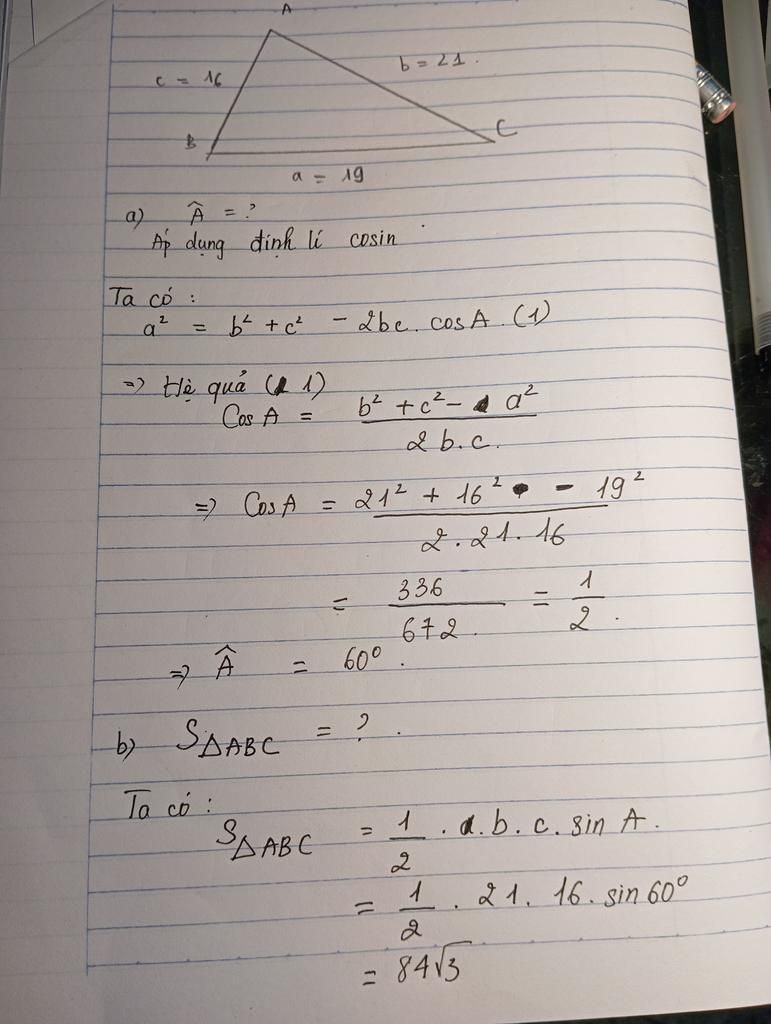 A
c = 16
b = 21.
B
C
a = 19
a) Â = ?
Áp dụng định lí cosin
Ta có :
a² = b² + c² - 2bc. cosA. (1)
=> Hệ quả (1)
Cos A = (b² + c² - a²) / (2b.c.)
=> CosA = (21² + 16² - 19²) / (2.21.16)
= 336 / 672. = 1 / 2.
=> Â = 60°.
b) S△ABC = ?.
Ta có :
S△ABC = 1/2 . b. c. sin A.
= 1/2 . 21. 16. sin 60°
= 84√3